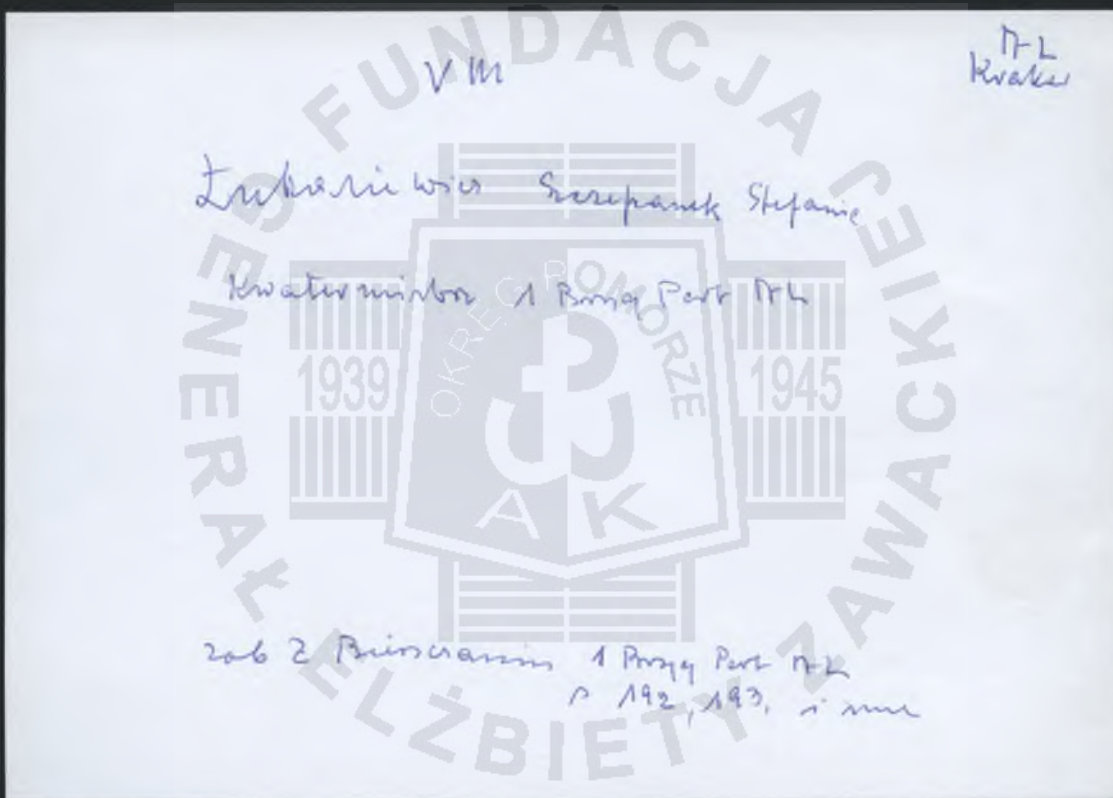 VM
AL
Kraków
Łukasiewicz Szczepanik Stefania
Kwatermistrz 1 Bryg Part AL
zob Z Bieszczanin 1 Bryg Part AL
s 192, 193, i inne
FUNDACJA GENERAŁ ELŻBIETY ZAWACKIEJ
OKRĘG POMORZE
1939 1945
AK